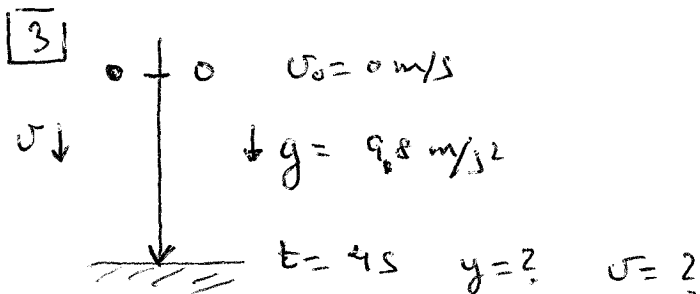 3
0 v₀ = 0 m/s
v ↓ ↓ g = 9,8 m/s²
t = 4s y = ? v = ?